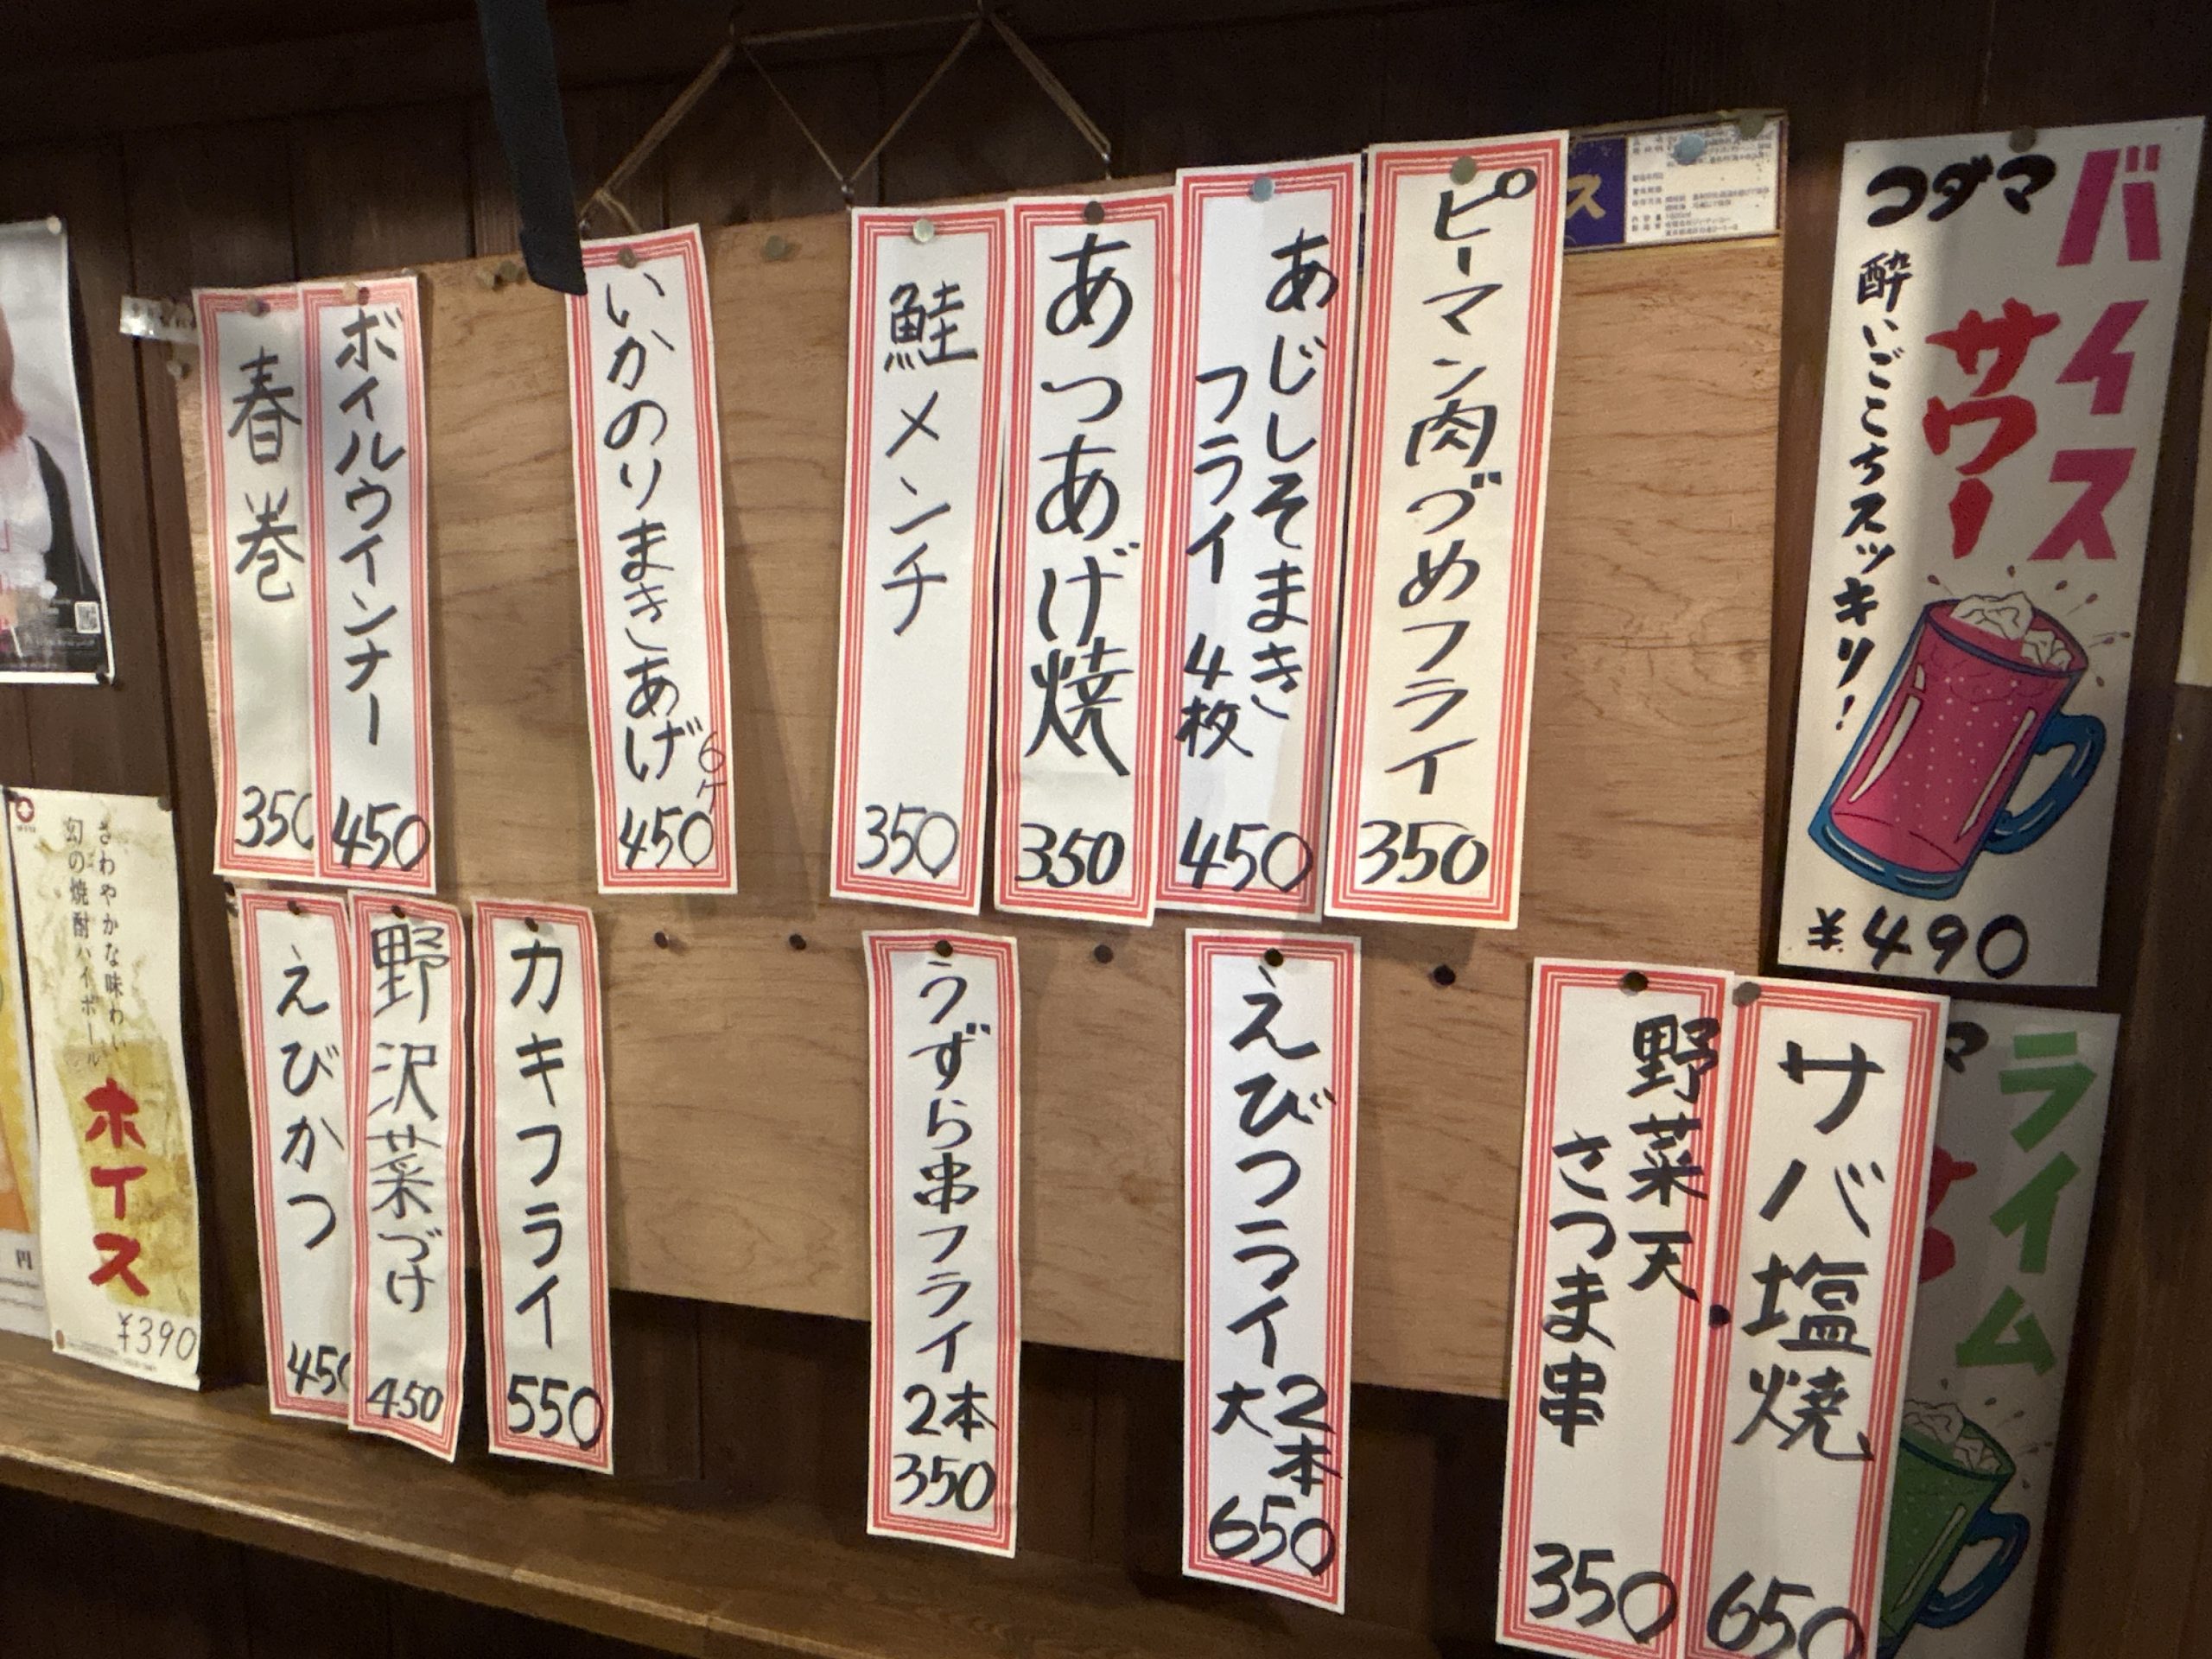 ピーマン肉づめフライ
350
あじしそまき
フライ 4枚
450
あつあげ焼
350
鮭メンチ
350
いかのりまきあげ
6ケ
450
ボイルウインナー
450
春巻
350
サバ塩焼
650
野菜天・
さつま串
350
えびフライ
大2本
650
うずら串フライ
2本
350
カキフライ
550
野沢菜づけ
450
えびかつ
450
バイス
サワー
コダマ
酔いごこちスッキリ!
¥490
ライム
サ
マ
ス
さわやかな味わい
幻の焼酎ハイボール
ホイス
¥390
円